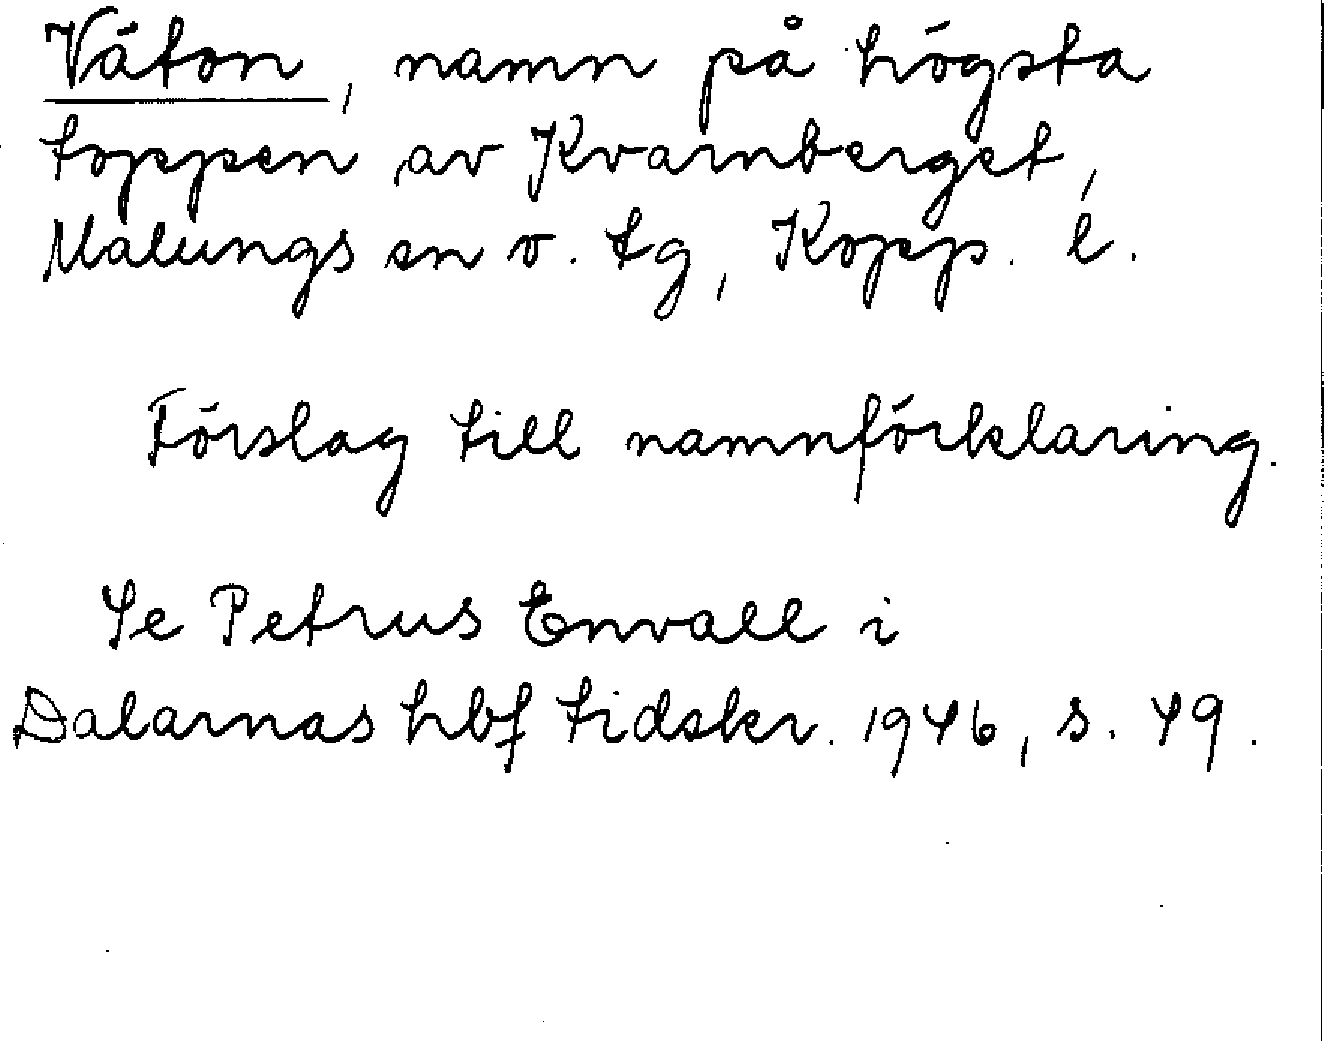 Väton, namn på högsta
toppen av Kvarnberget,
Malungs sn o. tg, Kopp. l.
Förslag till namnförklaring.
Se Petrus Envall i
Dalarnas hbf tidskr. 1946, s. 49.